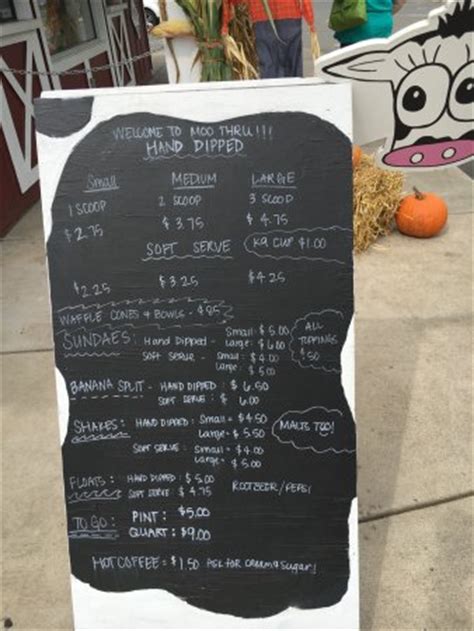 WELCOME TO MOO THRU!!!
HAND DIPPED
Small MEDIUM LARGE
1 SCOOP 2 SCOOP 3 SCOOP
$2.75 $3.75 $4.75
SOFT SERVE K9 CUP $1.00
$2.25 $3.25 $4.25
WAFFLE CONES & BOWLS - $.95
SUNDAES: Hand Dipped - Small: $5.00
Large: $6.00
SOFT SERVE - Small: $4.00
Large: $5.00
ALL TOPPINGS $.50
BANANA SPLIT - HAND DIPPED: $6.50
SOFT SERVE: $6.00
SHAKES: HAND DIPPED: Small= $4.50
Large= $5.50
SOFT SERVE: Small= $4.00
Large= $5.00
MALTS TOO!
FLOATS: HAND DIPPED: $5.00
SOFT SERVE $4.75
ROOTBEER/PEPSI
TO GO: PINT: $5.00
QUART: $9.00
HOT COFFEE = $1.50 ASK FOR CREAM & SUGAR!